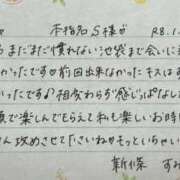 本指名S様が R8.1.
まだまだ慣れない池袋まで会いに
かったです♡前回出来なかったキスはす
たです♪相変わらず感じっぱなし
顔で楽しんでもらえて私も楽しいお時
ん攻めさせてださいね♥もっといちゃい
新條 す